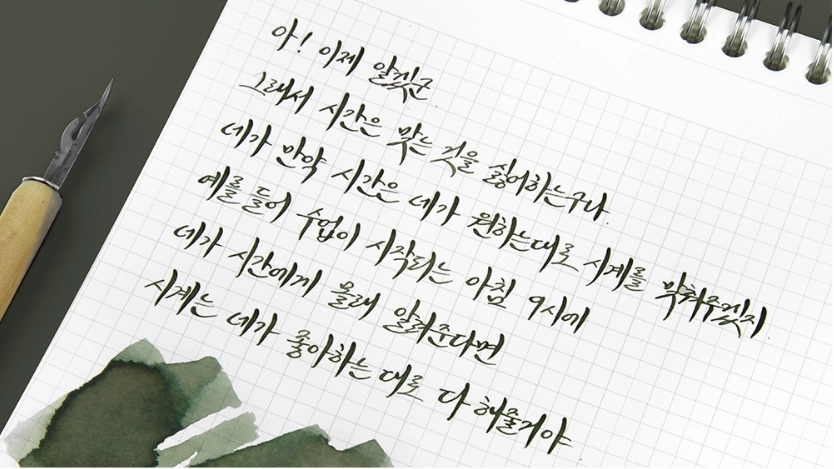 아! 이제 알겠군.
그래서 시간은 맞는 것을 싫어하는구나.
네가 만약 시간은 네가 원하는대로 시계를 막춰주겠지.
예를 들어 수업이 시작되는 아침 9시에
네가 시간에게 몰래 알려준다면
시계는 네가 좋아하는 대로 다 해줄거야